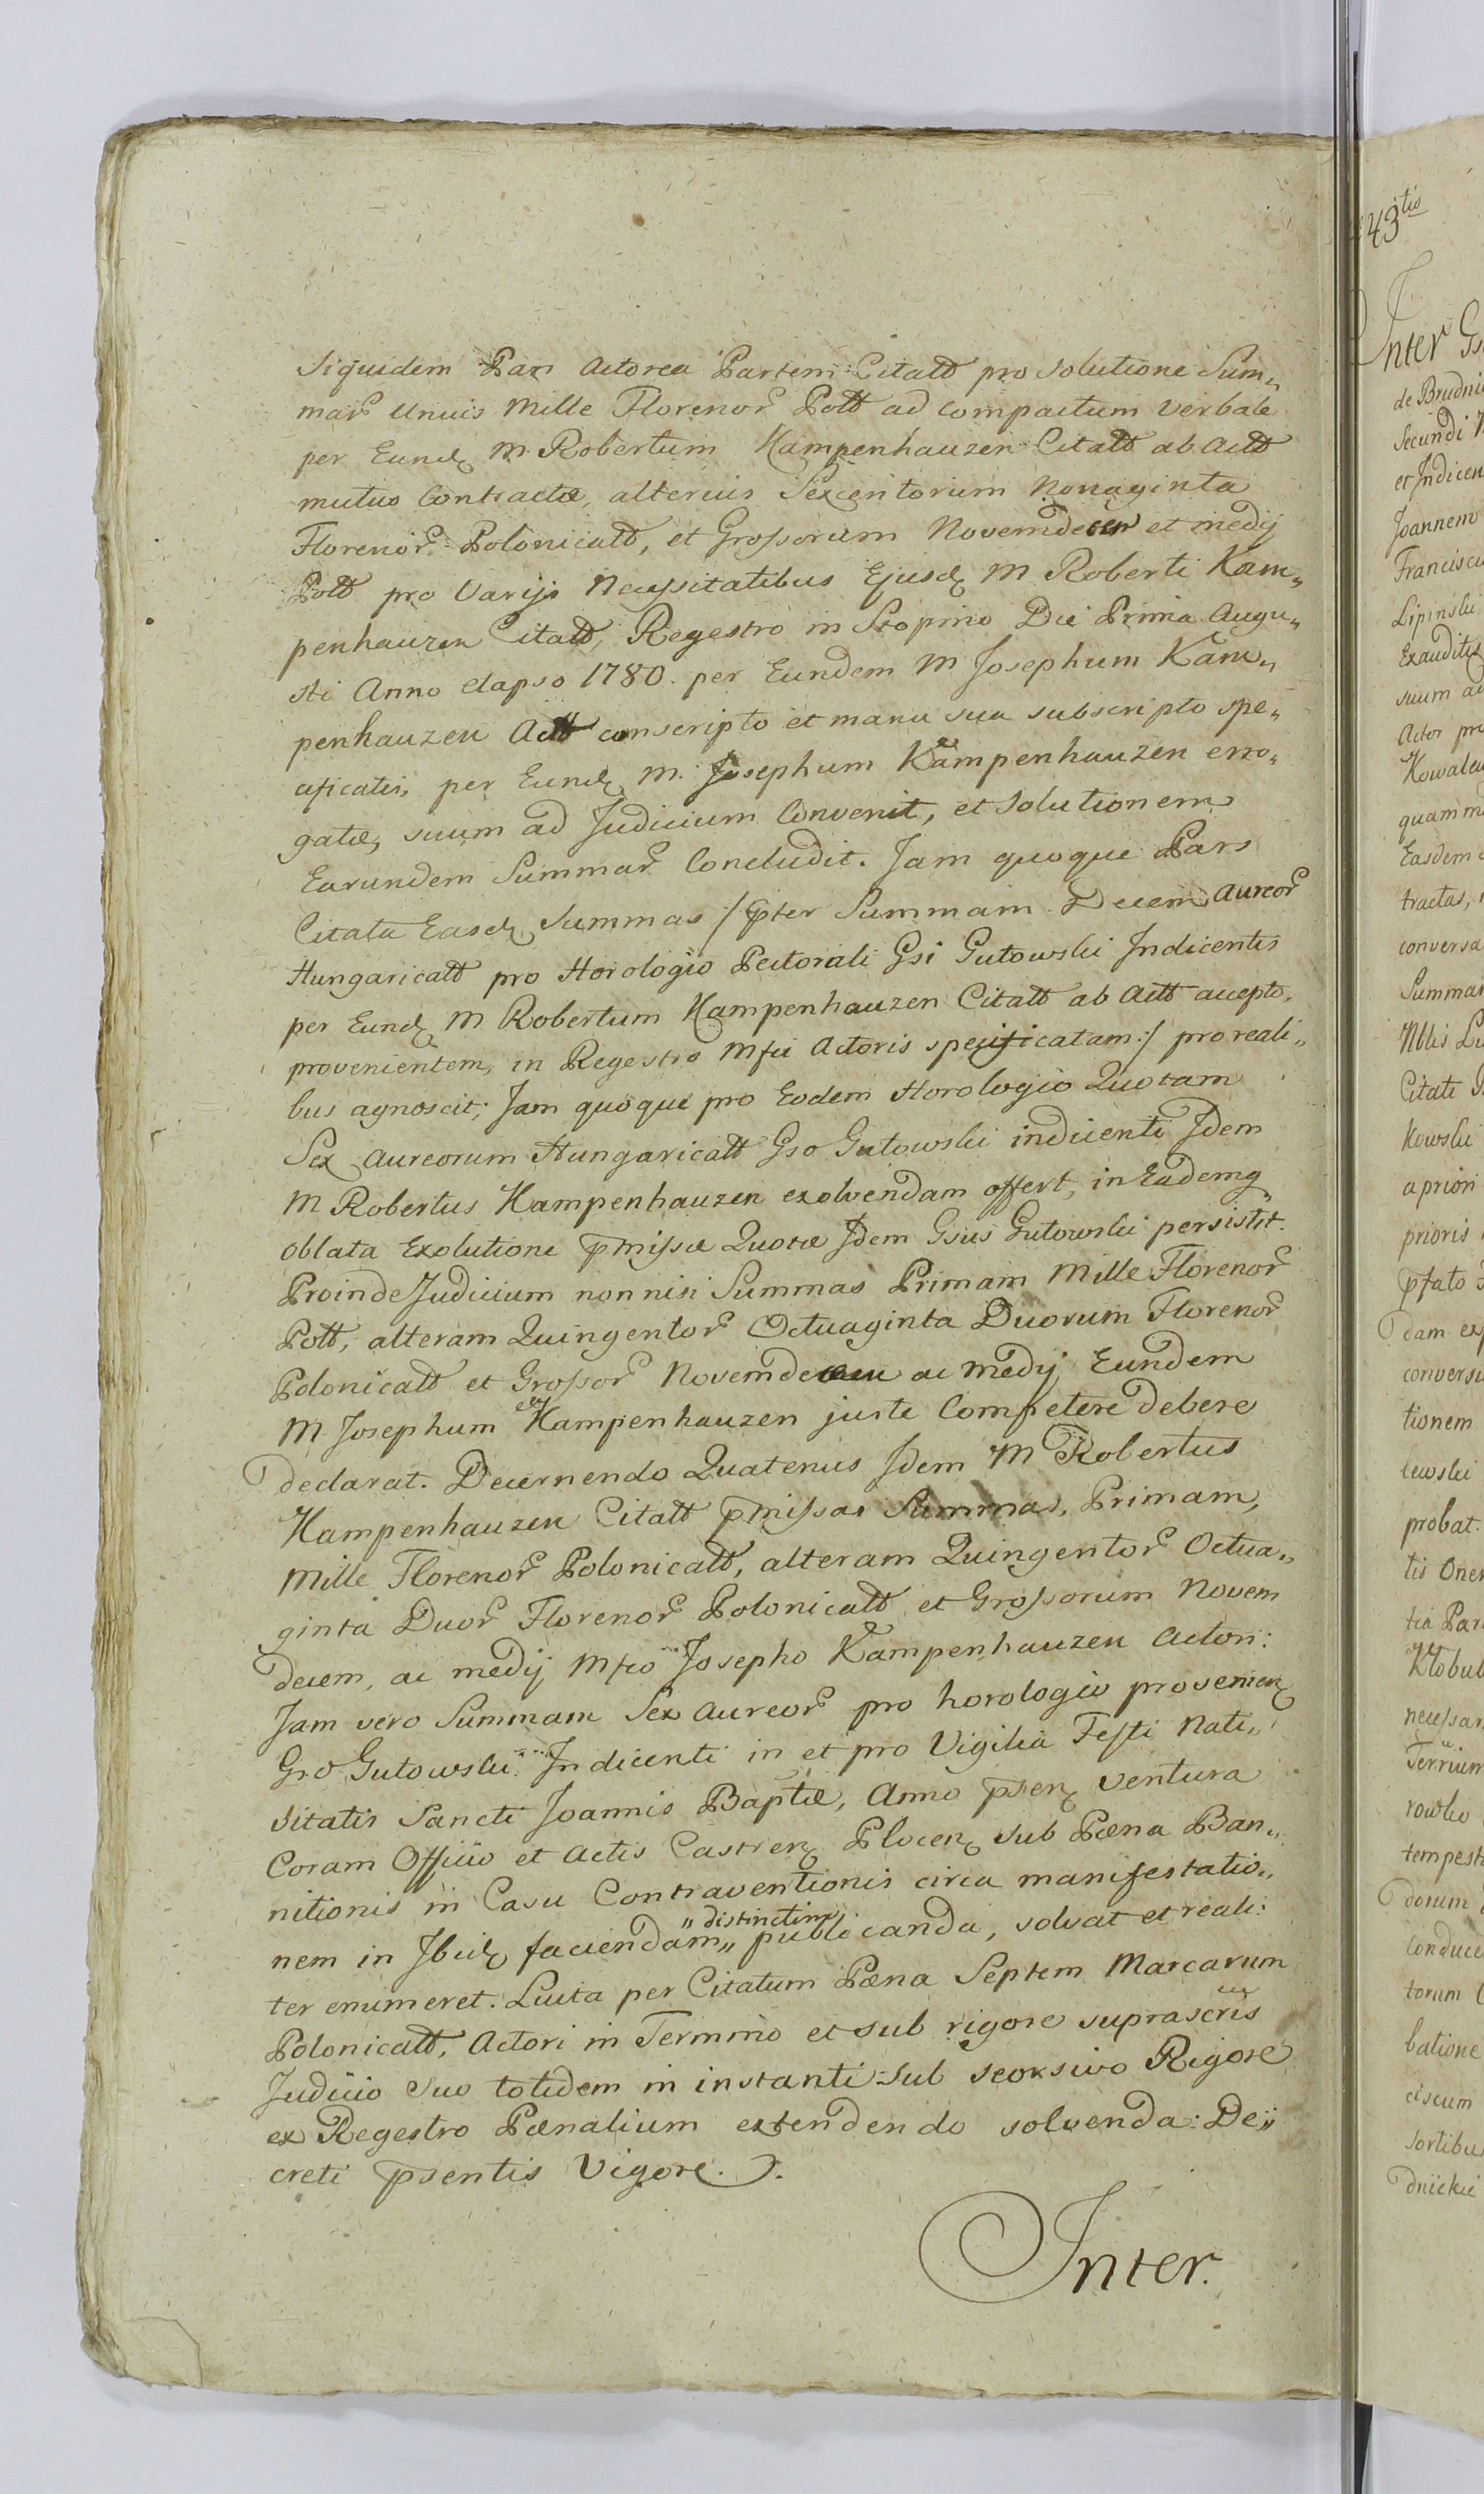 Siquidem Pars Actorea Partem Citatt pro Solutione Sum„
mar Unius Mille Florenor Pott ad Compactum Verbale
per Eund M Robertum Kampenhauzen Citatt ab Actt
mutuo Contractæ, alterius Sexcentorum Nonaginta
Florenor Polonicatt, et Grossorum Novemdecem et medij
Pott pro Varijs Necessitatibus Ejusd M Roberti Kam„
penhauzen Citatt, Regestro in Stopino Die Prima Augu„
sti Anno elapso 1780. per Eundem M Josephum Kam„
penhauzen Actt conscripto et manu sua subscripto spe„
cificatis, per Eund M. Josephum Kampenhauzen erro„
gatæ, suum ad Judicium Convenit, et Solutionem
Earundem Summar Concludit. Jam quoque Pars
Citata Easd Summas /:pter Summam Decem Aureor
Hungaricatt pro Horologio Pectorali Gsi Gutowski Indicentis
per Eund M Robertum Kampenhauzen Citatt ab Actt accepto,
provenientem, in Regestro Mfci Actoris specificatam:/ pro reali„
bus agnoscit; Jam quoque pro Eodem Horologio Quotam
Sex Aureorum Hungaricatt Gso Gutowski indicenti Jdem
M Robertus Kampenhauzen exolvendam offert, in Eademq
Oblata Exolutione pmissæ Quotæ Jdem Gsus Gutowski persistit.
Proinde Judicium nonnisi Summas Primam Mille Florenor
Pott, alteram Quingentor Octuaginta Duorum Florenor
Polonicatt et Grossor Novemdecem ac medij Eundem
M Josephum Kampenhauzen juste Competere debere
declarat. Decernendo Quatenus Jdem M Robertus
Kampenhauzen Citatt pmissas Summas, Primam,
Mille Florenor Polonicatt, alteram Quingentor Octua„
ginta Duor Florenor Polonicatt et Grossorum Novem
decem, ac medij Mfco Josepho Kampenhauzen Actori:
Jam vero Summam Sex Aureor pro horologio provenien
Gso Gutowski Indicenti in et pro Vigilia Festi Nati„
vitatis Sancti Joannis Baptæ, Anno psen ventura
Coram Officio et Actis Castren Plocen sub Pæna Ban„
nitionis in Casu Contraventionis circa manifestatio„
nem in Jbid faciendam „distinctim„ publicanda, solvat et reali:
ter enumeret. Luita per Citatum Pæna Septem Marcarum
Polonicatt, Actori in Termino et sub rigore suprascris
Judicio Suo totidem in instanti sub seorsivo Rigore
ex Regestro Pænalium extendendo solvenda: De„
creti psentis Vigore.
Inter.
43tio
Inter Gs
de Brudni
Secundi
et Indicen
Joannem
Francisc
Lipinski
Exauditis
suum ad
Actor pro
Kowalew
quam m
Easdem
tractas,
conversa
Summar
Nblis
Citati
kowski
a priori
prioris
pfato
dam exp
conversi
tionem
lewski
probat.
tis Oner
tia Par
Kłobuk
necessar
Terrium
rowko
tempest
dorum
Conduce
torum
batione
ciscum
sortibu
dnickie